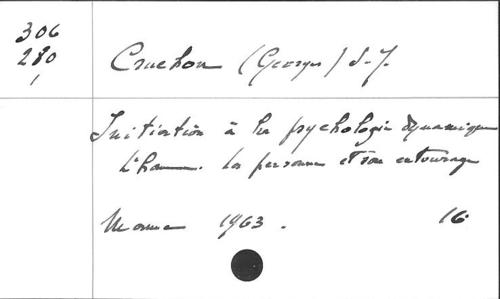 306
280
1
Cruchon (Georges) S-J.
Initiation à la psychologie dynamique
L'homme. La personne et son entourage
Mame 1963. 16.